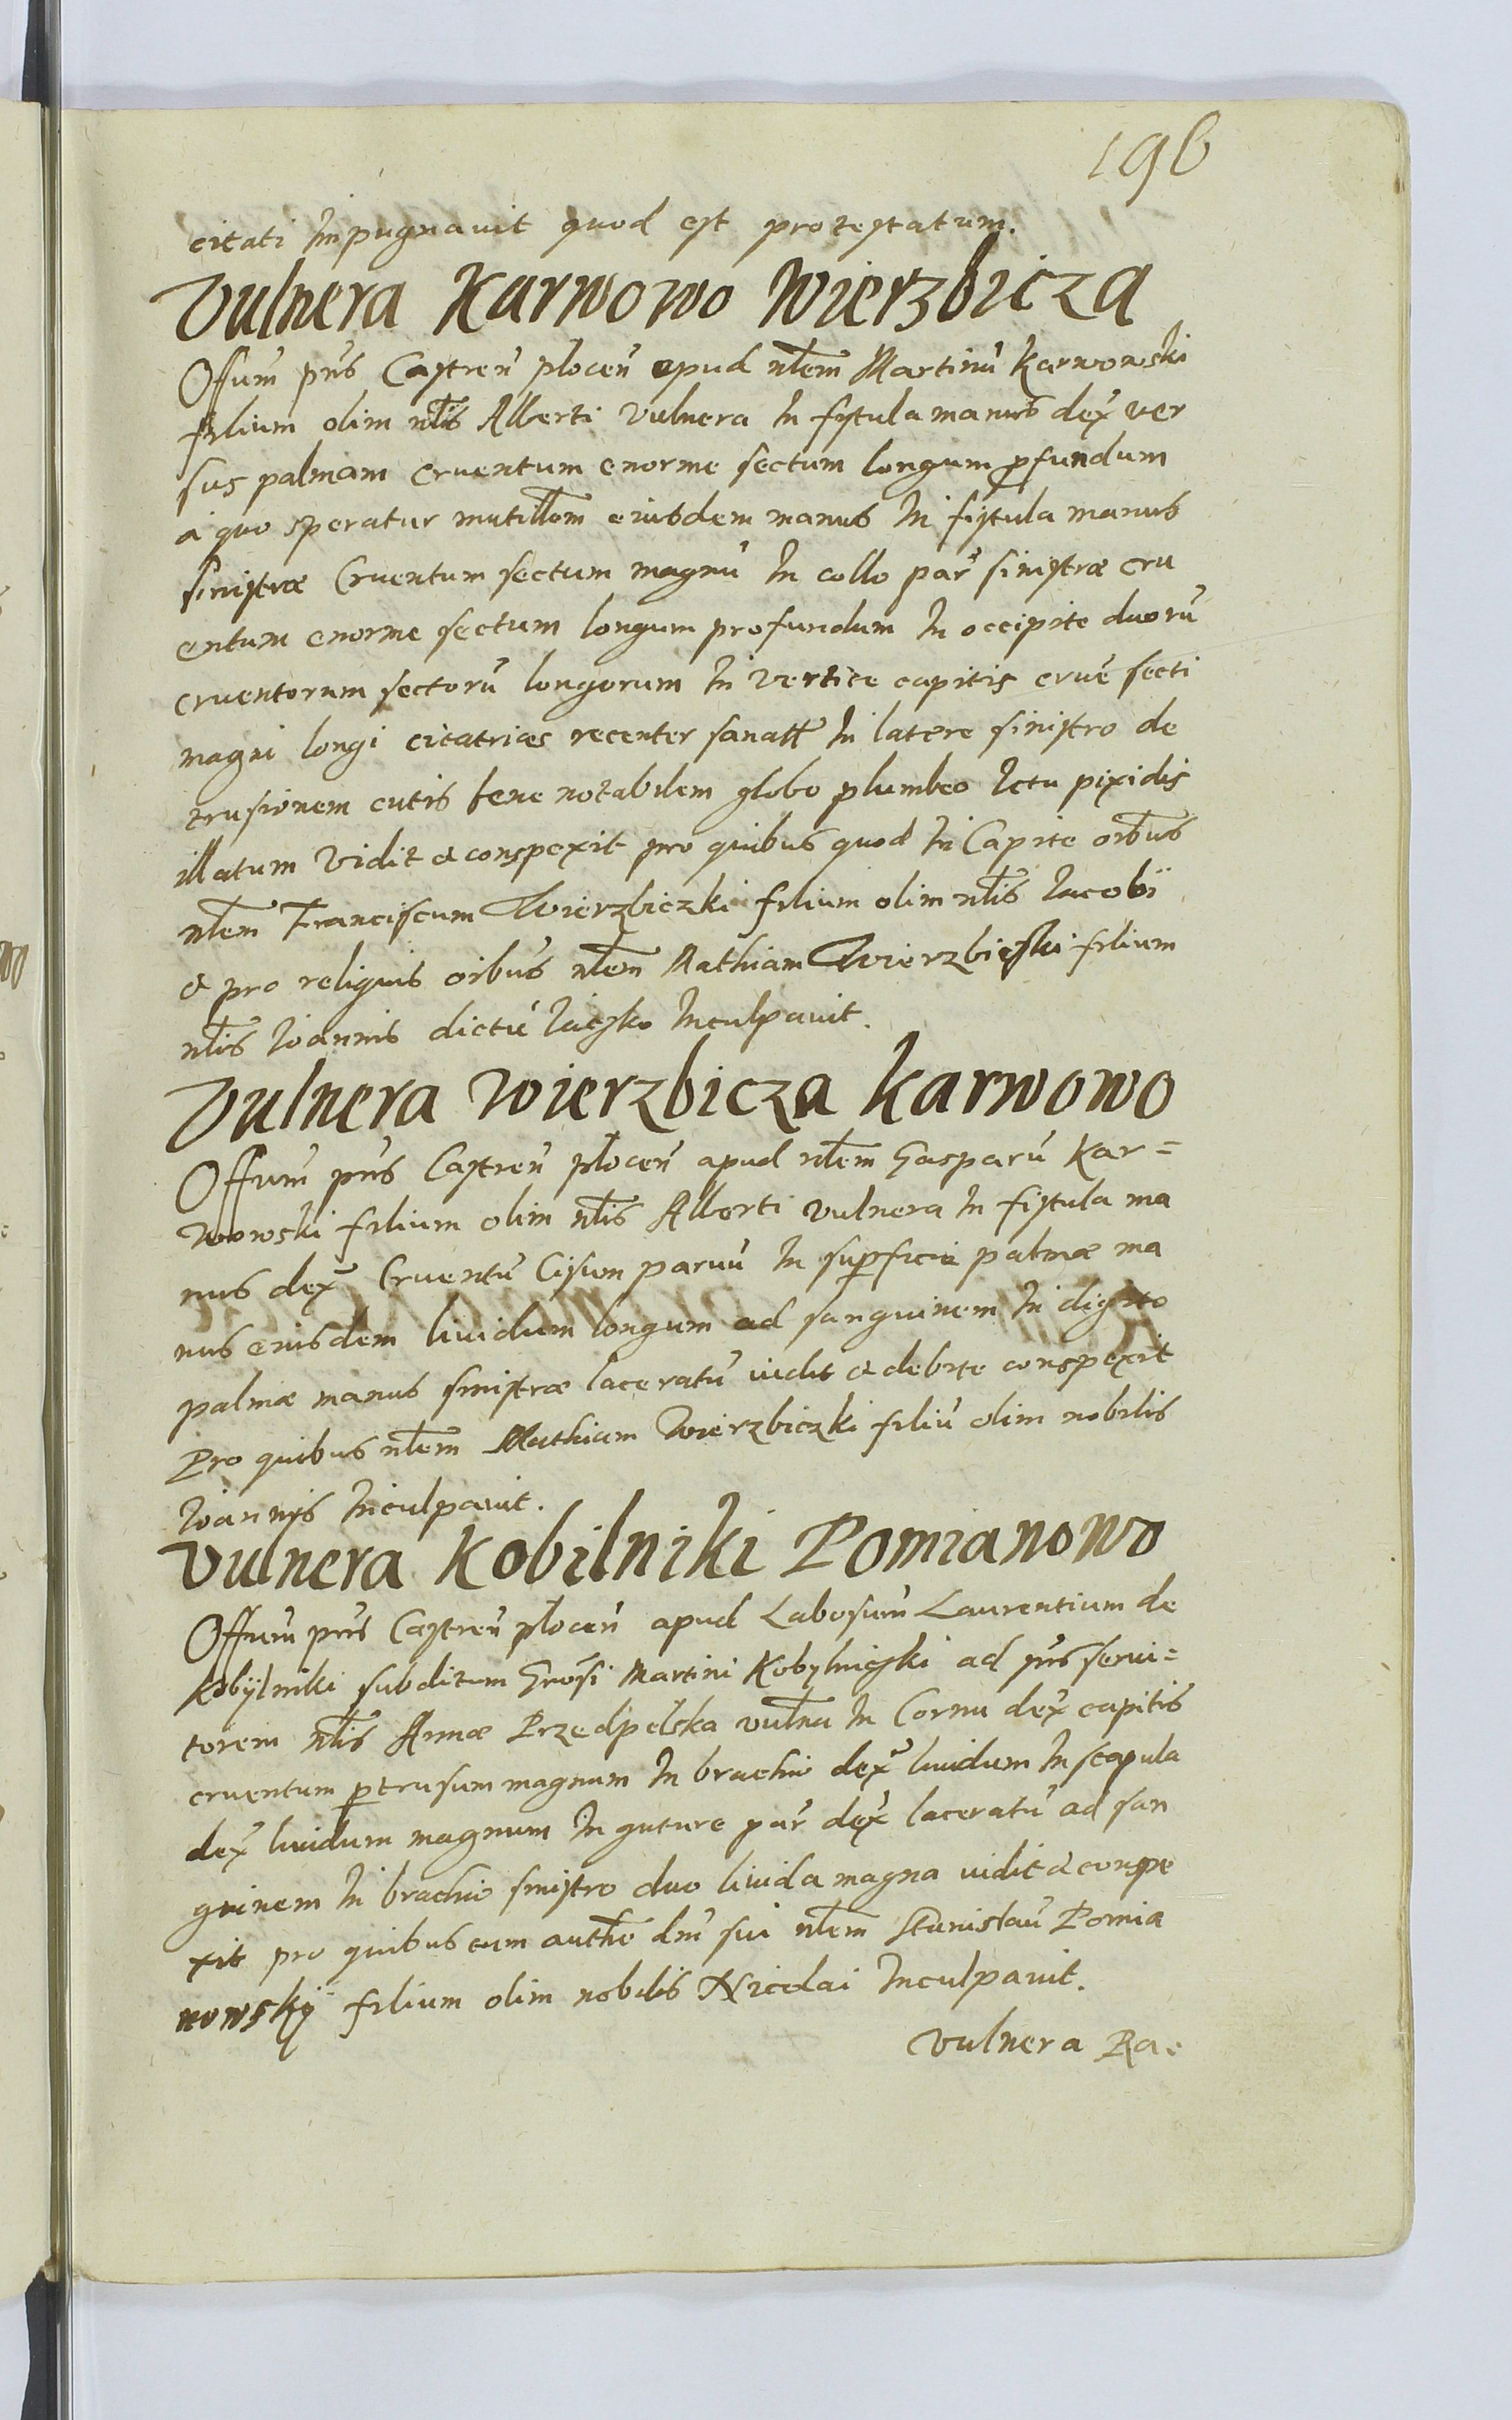 196
citati Impugnauit quod est protestatum.
Vulnera Karwowo Wierzbicza
Offum pns̄ Castren̄ plocen̄ apud nlem̄ Martinū Karwowski
filium olim nlis̄ Alberti Vulnera In fistula manus dex̄ ver
sus palmam Cruentum enorme sectum longum ꝓfundum
a quo speratur mutillom̄ eiusdem manus In fistula manus
sinistræ Cruentum sectum magnū In collo par̄ sinistræ cru
entum enorme sectum longum profundum In occipite duorū
cruentorum sectorū longorum In Vertice capitis cruē secti
magni longi citatrices recenter sanatt In latere sinistro de
trusionem cutis bene notabilem globo plumbeo Ictu pixidis
illatum Vidit & conspexit pro quibus quod In Capite oibūs
nlem̄ Franciscum Wierzbiczki filium olim nlis̄ Iacobi
& pro reliquis oibūs nlem̄ Mathiam Wierzbicski filium
nlis̄ Ioannis dictū Inculpauit.
Vulnera Wierzbicza Karwowo
Offum pns̄ Castren̄ plocen̄ apud nlem̄ Gasparū Kar=
wowski filium olim nlis̄ Alberti vulnera In fistula ma
nus dex̄ Cruentū Cisum paruū In suꝑficie palmæ ma
nus eiusdem liuidum longum ad sanguinem In digito
palmæ manus sinistræ laceratū vidit & debite conspexit
Pro quibus nlem̄ Mathiam Wierzbiczki filiū olim nobilis
Ioannis Inculpauit.
Vulnera Kobilniki Pomianowo
Offum pns̄ Castren̄ plocen̄ apud Labosum̄ Laurentium de
Kobÿlniki subditum Grosi̅ Martini Kobylnicski ad pns̄ serui=
torem nlis̄ Annæ Przedpelska vulnā In Cornu dex̄ capitis
cruentum ꝑtrusum magnum In brachio dex̄ liuidum In scapula
dex̄ liuidum magnum In guture par̄ dex̄ laceratū ad san
guinem In brachio sinistro duo liuida magna vidit & conspe
xit pro quibus cum authē dni̅ sui nlem̄ Stanislaū Pomia
nowskÿ filium olim nobilis Nicolai Inculpauit.
Vulnera Ra=